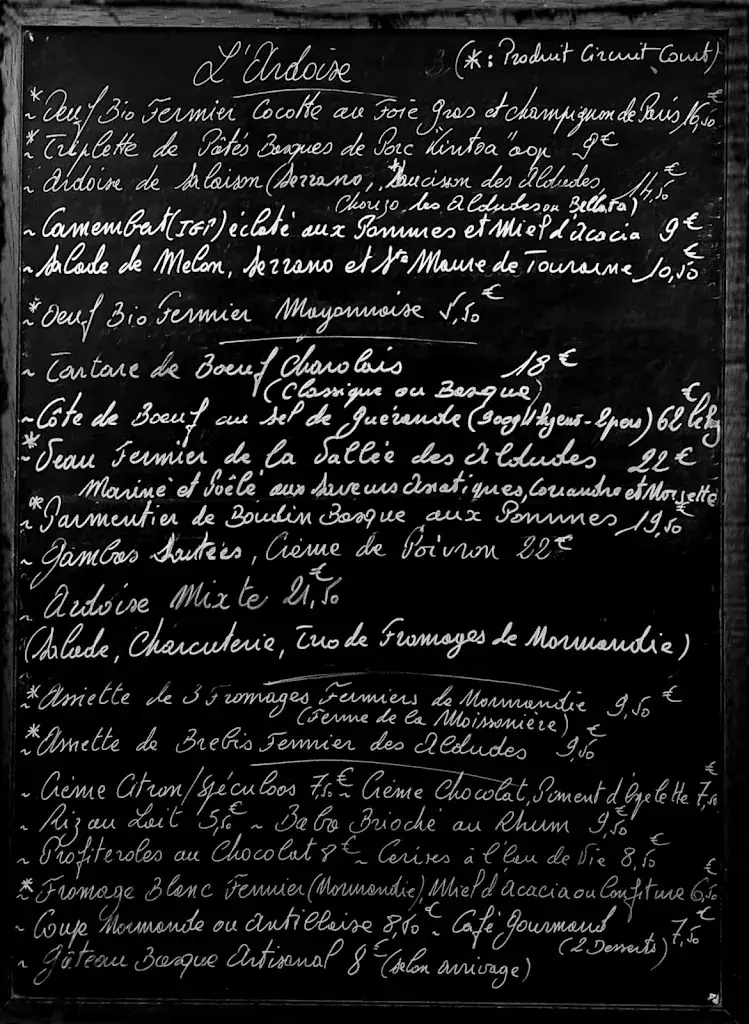 L'Ardoise (*: Produit Circuit Court)
*~ Oeuf Bio Fermier Cocotte au Foie gras et champignon de Paris 16,50€
*~ Triplette de Pâtés Basques de Porc "Kintoa" aop 9€
~ Ardoise de Salaison (Serrano, *Saucisson des Aldudes, 14,50€
Chorizo des Aldudes ou Bellota)
~ Camembert (IGP) éclaté aux Pommes et Miel d'Acacia 9€
~ Salade de Melon, Serrano et Ste Maure de Touraine 10,50€
*~ Oeuf Bio Fermier Mayonnaise 5,50€
~ Tartare de Boeuf Charolais 18€
(Classique ou Basque)
~ Côte de Boeuf au Sel de Guérande (900g/1kg env - 2 pers) 62€ le kg
*~ Veau Fermier de la Vallée des Aldudes 22€
Mariné et Poêlé aux Saveurs Asiatiques, Coriandre et Noisette
*~ Parmentier de Boudin Basque aux Pommes 19,50€
~ Gambas Sautées, Crème de Poivron 22€
~ Ardoise Mixte 21,50€
(Salade, Charcuterie, Trio de Fromages de Normandie)
*~ Assiette de 3 Fromages Fermiers de Normandie 9,50€
(Ferme de la Moissonière)
*~ Assiette de Brebis Fermier des Aldudes 9,50€
~ Crème Citron/Spéculoos 7,50€ ~ Crème Chocolat, Piment d'Espelette 7,50€
~ Riz au Lait 5,50€ ~ Baba Brioché au Rhum 9,50€
~ Profiteroles au Chocolat 8€ ~ Cerises à l'Eau de Vie 8,50€
*~ Fromage Blanc Fermier (Normandie), Miel d'Acacia ou Confiture 6,50€
~ Coupe Normande ou Antillaise 8,50€ ~ Café Gourmand 7,50€
(2 Desserts)
~ Gâteau Basque Artisanal 8€ (selon arrivage)